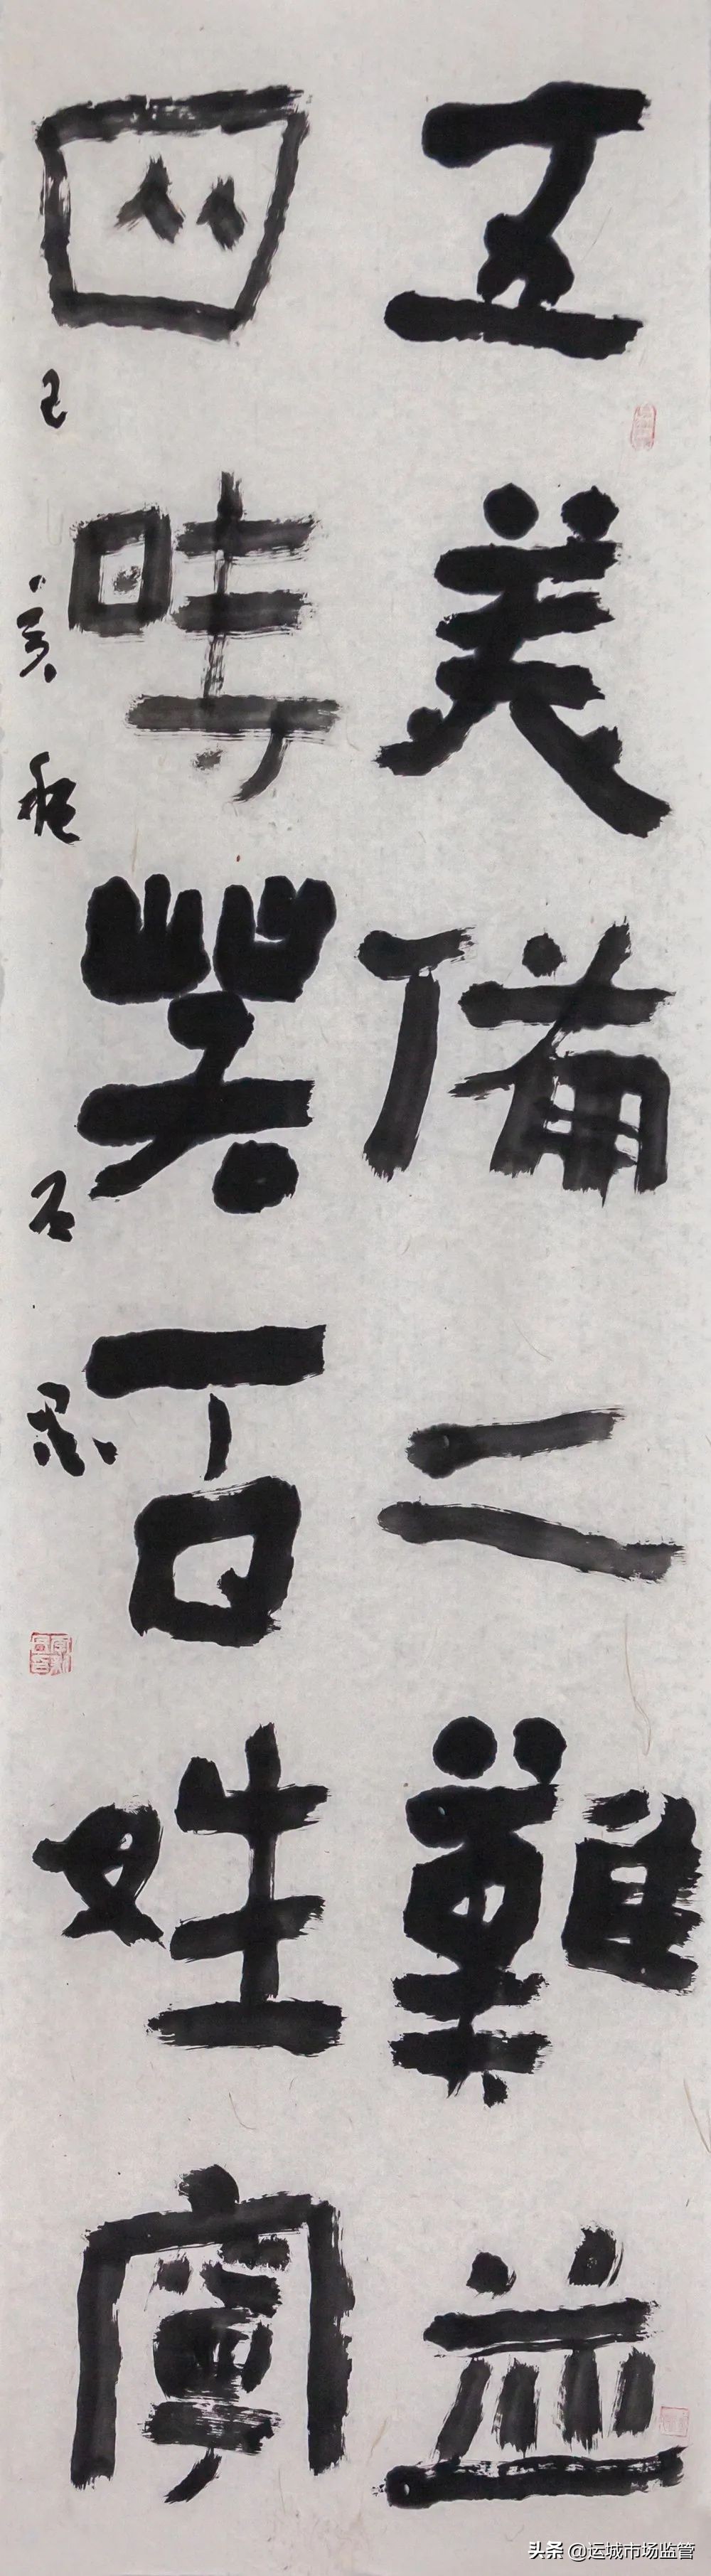 五美備二難並
四時笑百姓寧
己亥秋石
头条 @运城市场监管